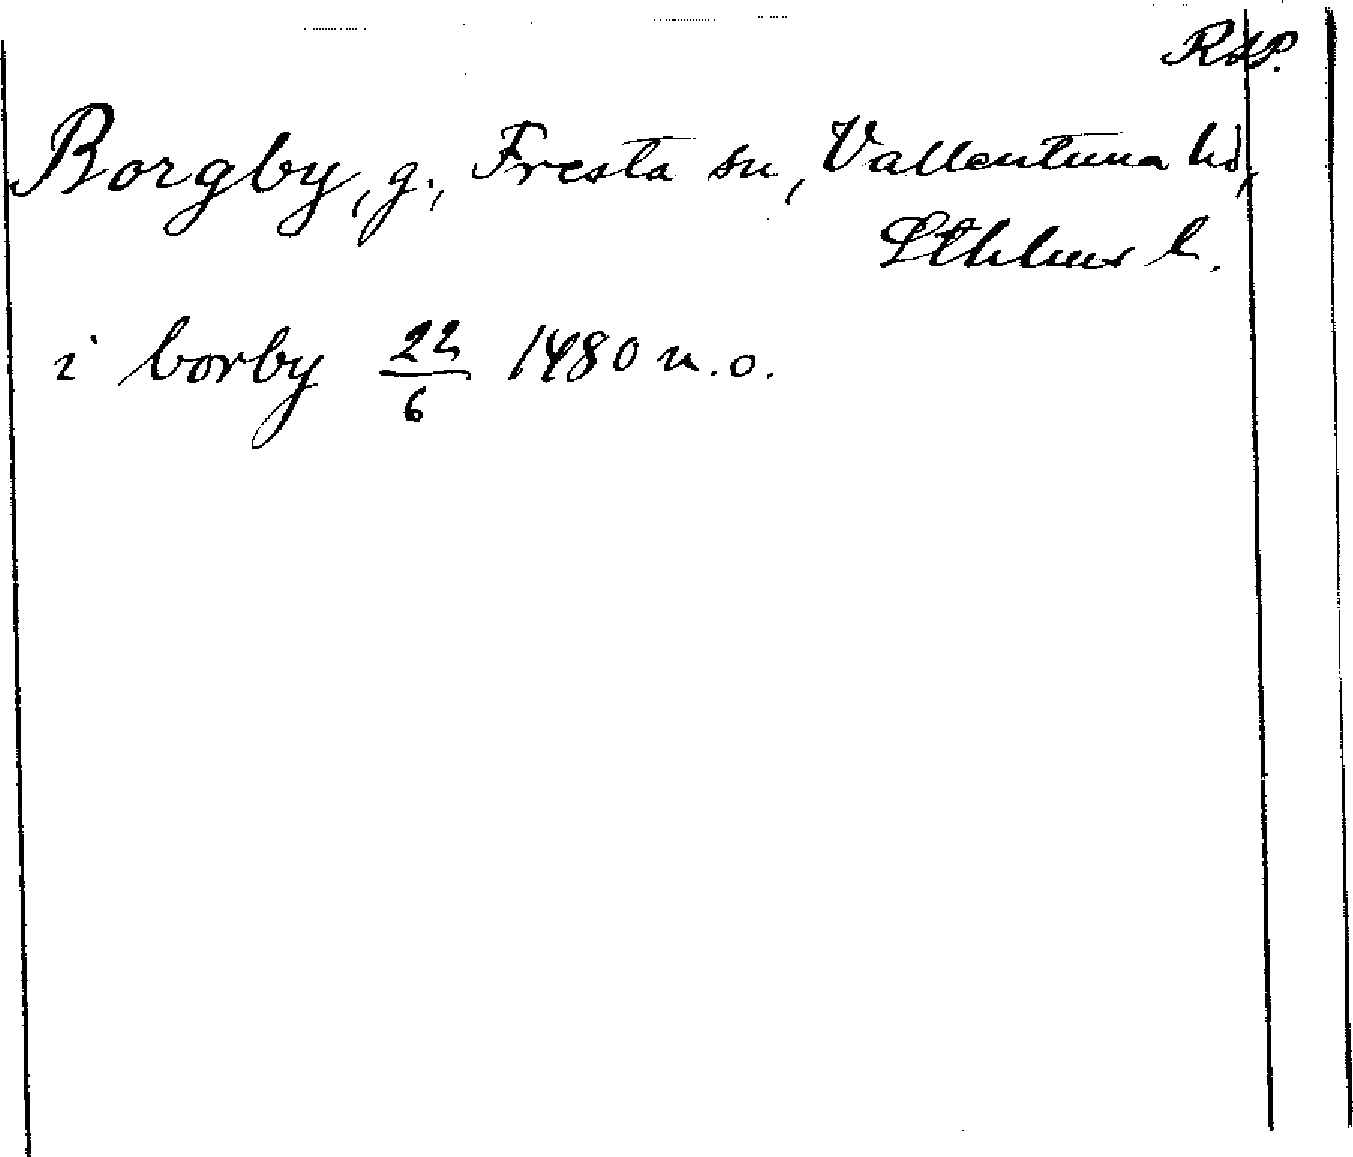 RAP.
Borgby, g., Fresta sn, Vallentuna hd,
Sthlms l.
i borby 22/6 1480 n.o.